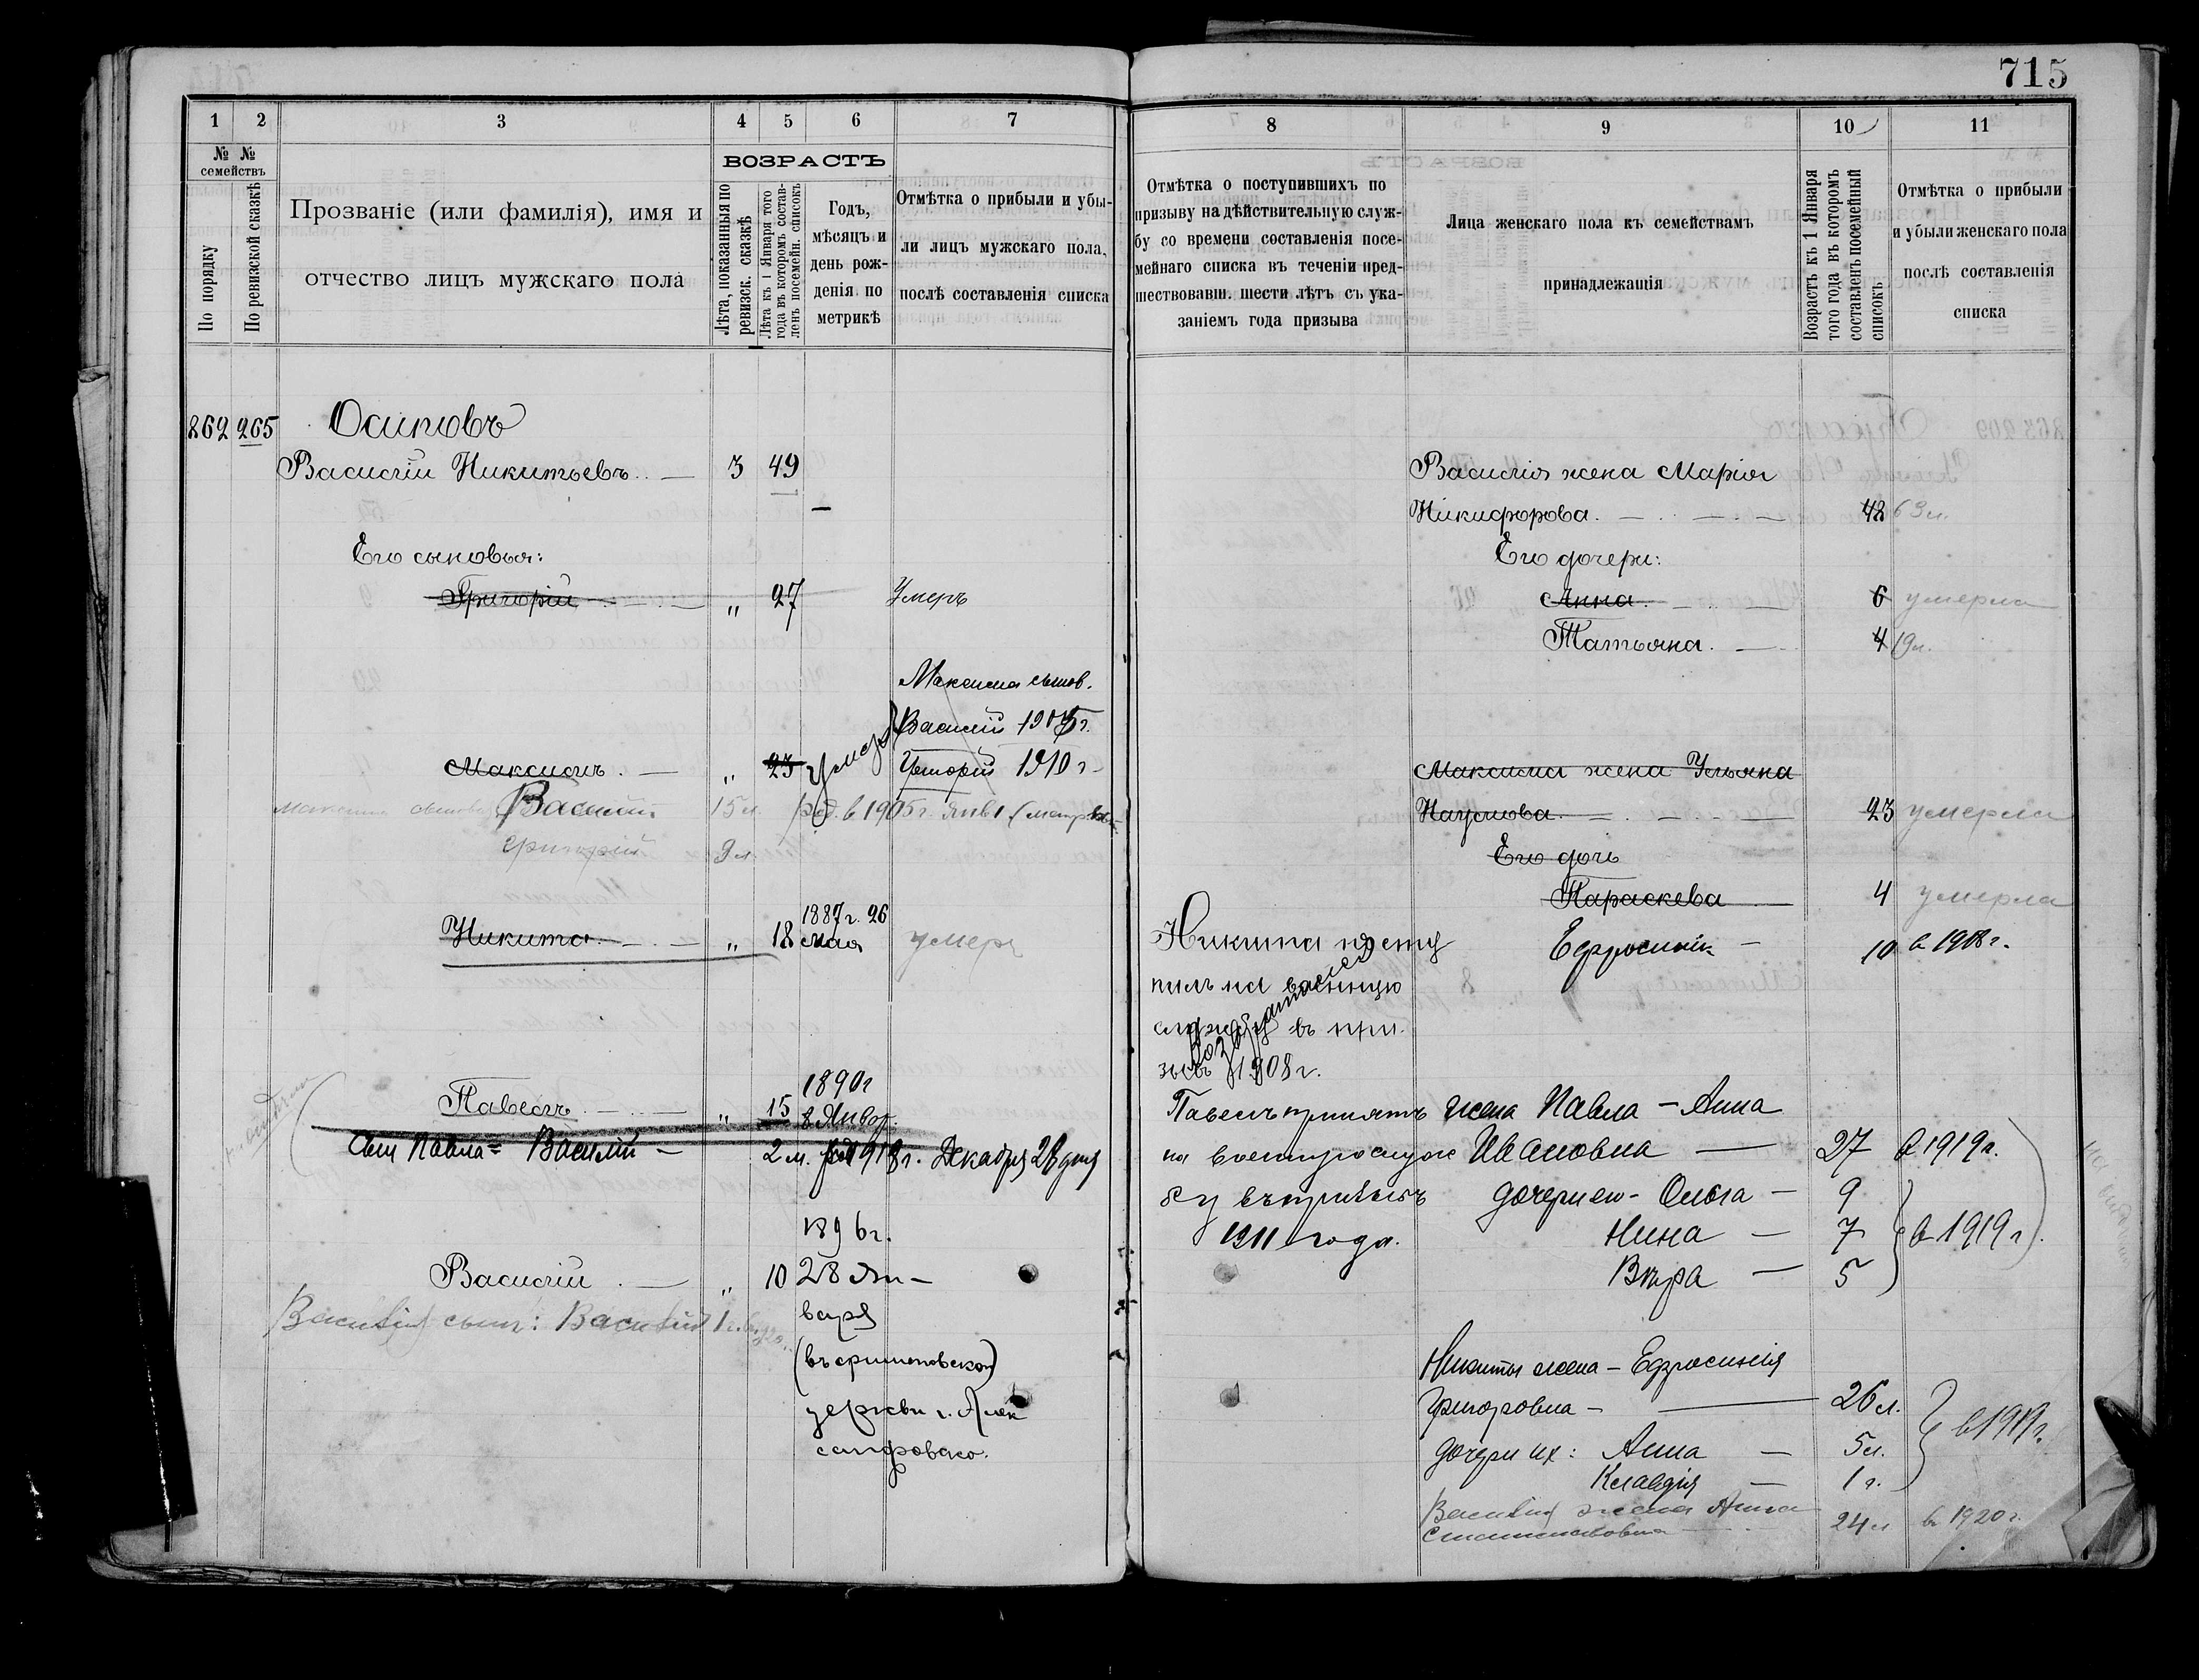 715
1 2 3 4 5 6 7
№ № семействъ
По порядку
По ревизской сказкѣ
Прозваніе (или фамилія), имя и
отчество лицъ мужскаго пола
ВОЗРАСТЪ
Лѣта, показанныя по
ревизск. сказкѣ
Лѣта къ 1 Января того
года въ которомъ состав-
ленъ посемейн. списокъ
Годъ,
мѣсяцъ и
день рож-
денія по
метрикѣ
Отмѣтка о прибыли и убы-
ли лицъ мужскаго пола,
послѣ составленія списка
862 265 Осиповъ
Василій Никитьевъ 3 49
Его сыновья:
Григорій „ 27 Умеръ
Максима сынов.
Василій 1905 г.
Григорій 1910 г
Максимъ „ 23 Умеръ
Максима сыновья Василій 15 л. род. в 1905 г. янв 1
Григорій 9 л.
1887 г. 26
Никита „ 18 мая умеръ
1890 г
Павелъ „ 15 8 Январ.
Сын Павла = Василій 2 м. род 1918 г. Декабря 28 дня
1896 г.
Василій „ 10 28 Ян-
варя
Василія сын: Василій 1 г.
церкви г. Алек
сандровско.
8 9 10 11
Отмѣтка о поступившихъ по
призыву на дѣйствительную служ-
бу со времени составленія посе-
мейнаго списка въ теченіи пред-
шествовавш. шести лѣтъ съ ука-
заніемъ года призыва
Лица женскаго пола къ семействамъ
принадлежащія
Возрастъ къ 1 Января
того года въ которомъ
составленъ посемейный
списокъ
Отмѣтка о прибыли
и убыли женскаго пола
послѣ составленія
списка
Василія жена Марія
Никифорова 42 63 л.
Его дочери:
Анна 6 умерла
Татьяна 4 19 л.
Максима жена Ульяна
Наумова 23 умерла
Его дочь
Параскева 4 умерла
Никита посту
пилъ на военную
службу въ при
зывъ 1908 г.
возвратился
Ефросинія 10 в 1908 г.
Павелъ принятъ
на военную служ
бу въ призывъ
1911 года.
жена Павла - Анна
Ивановна 27 в 1919 г.
дочери ею - Ольга - 9
Нина - 7 в 1919 г.
Вѣра - 5
Никиты жена - Ефросинія
Григоровна - 26 л.
дочери их: Анна - 5 л. в 1919 г.
Клавдія - 1 г.
Василія жена Анна
24 л в 1920 г.